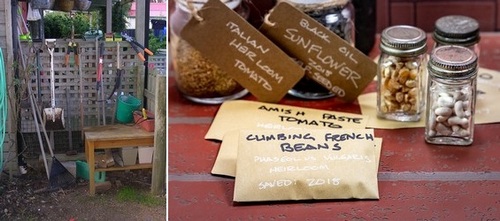 ITALIAN
HEIRLOOM
TOMATO
BLACK OIL
SUNFLOWER
SAVED
AMISH PASTE
TOMATO
CLIMBING FRENCH
BEANS
PHASEOLUS VULGARIS
HEIRLOOM
SAVED: 2015